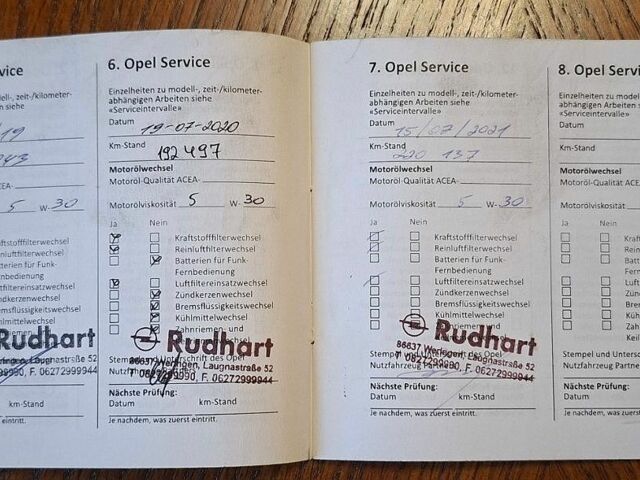 vice
dell-, zeit-/kilometer-
n Arbeiten siehe
tervalle«
19
943
echsel
ität ACEA-
5 W- 30
Kraftstofffilterwechsel
Reinluftfilterwechsel
Batterien für Funk-
Fernbedienung
Luftfiltereinsatzwechsel
Zündkerzenwechsel
Bremsflüssigkeitswechsel
Kühlmittelwechsel
Rudhart
Laugnastraße 52
F. 06272999944
Prüfung:
km-Stand
was zuerst eintritt.
6. Opel Service
Einzelheiten zu modell-, zeit-/kilometer-
abhängigen Arbeiten siehe
»Serviceintervalle«
Datum 19-07-2020
Km-Stand 192 497
Motorölwechsel
Motoröl-Qualität ACEA-
Motorölviskosität 5 W- 30
Ja Nein
Kraftstofffilterwechsel
Reinluftfilterwechsel
Batterien für Funk-
Fernbedienung
Luftfiltereinsatzwechsel
Zündkerzenwechsel
Bremsflüssigkeitswechsel
Kühlmittelwechsel
Zahnriemen- und
Rudhart
Stempel und Unterschrift des Opel
86637 Wertingen, Laugnastraße 52
F. 06272999944
Nächste Prüfung:
Datum km-Stand
Je nachdem, was zuerst eintritt.
7. Opel Service
Einzelheiten zu modell-, zeit-/kilometer-
abhängigen Arbeiten siehe
»Serviceintervalle«
Datum 15/07/2021
Km-Stand 220 137
Motorölwechsel
Motoröl-Qualität ACEA-
Motorölviskosität 5 W- 30
Ja Nein
Kraftstofffilterwechsel
Reinluftfilterwechsel
Batterien für Funk-
Fernbedienung
Luftfiltereinsatzwechsel
Zündkerzenwechsel
Bremsflüssigkeitswechsel
Kühlmittelwechsel
Zahnriemen- und
Rudhart
86637 Wertingen, Laugnastraße 52
Stempel und Unterschrift des Opel
Nutzfahrzeug
F. 06272999944
Nächste Prüfung:
Datum km-Stand
Je nachdem, was zuerst eintritt.
8. Opel Servi
Einzelheiten zu mo
abhängigen Arbeite
»Serviceintervalle«
Datum
Km-Stand
Motorölwechsel
Motoröl-Qualität A
Motorölviskosität
Ja Nein
Kraft
Reinl
Batt
Fern
Luft
Zün
Bre
Küh
Zah
Keil
Stempel und Unters
Nutzfahrzeug Partne
Nächste Prüfung:
Datum
Je nachdem, was zue